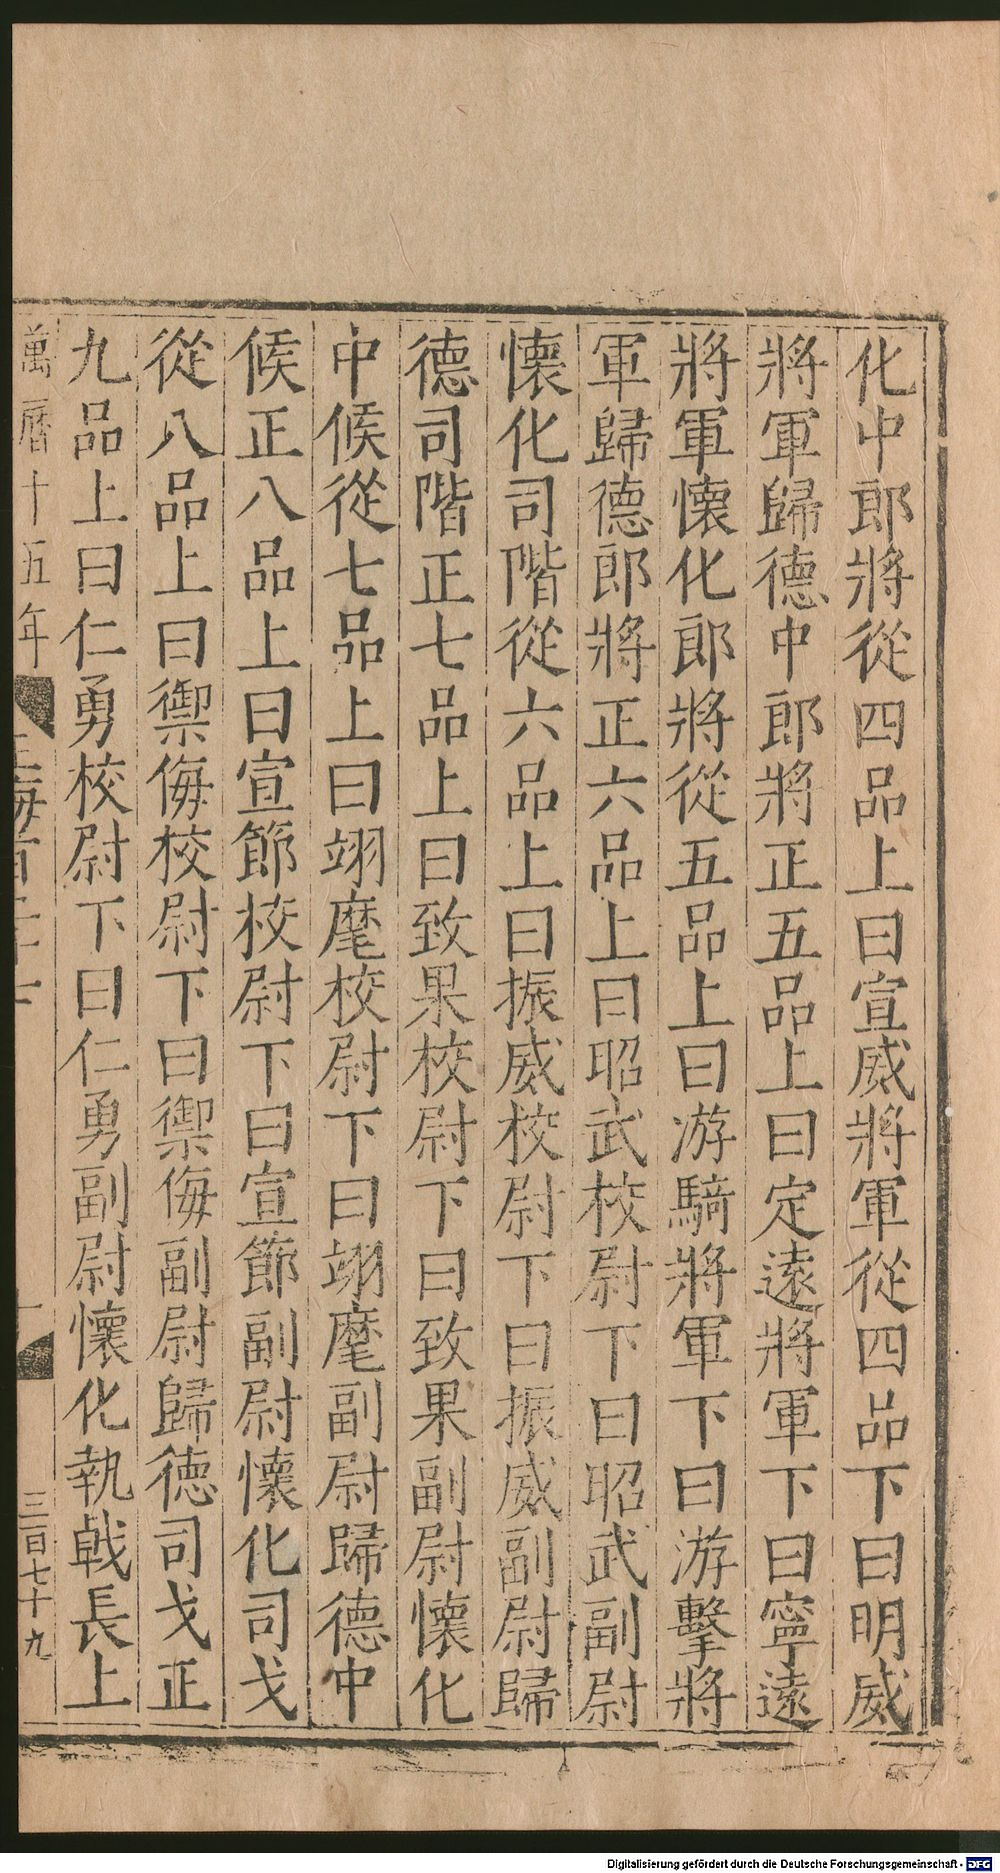 化中郎將從四品上曰宣威將軍從四品下曰明威
將軍歸德中郎將正五品上曰定遠將軍下曰寧遠
將軍懷化郎將從五品上曰游騎將軍下曰游擊將
軍歸德郎將正六品上曰昭武校尉下曰昭武副尉
懷化司階從六品上曰振威校尉下曰振威副尉歸
德司階正七品上曰致果校尉下曰致果副尉懷化
中候從七品上曰翊麾校尉下曰翊麾副尉歸德中
候正八品上曰宣節校尉下曰宣節副尉懷化司戈
從八品上曰禦侮校尉下曰禦侮副尉歸德司戈正
九品上曰仁勇校尉下曰仁勇副尉懷化執戟長上
萬曆十五年
三百七十九
Digitalisierung gefördert durch die Deutsche Forschungsgemeinschaft - DFG